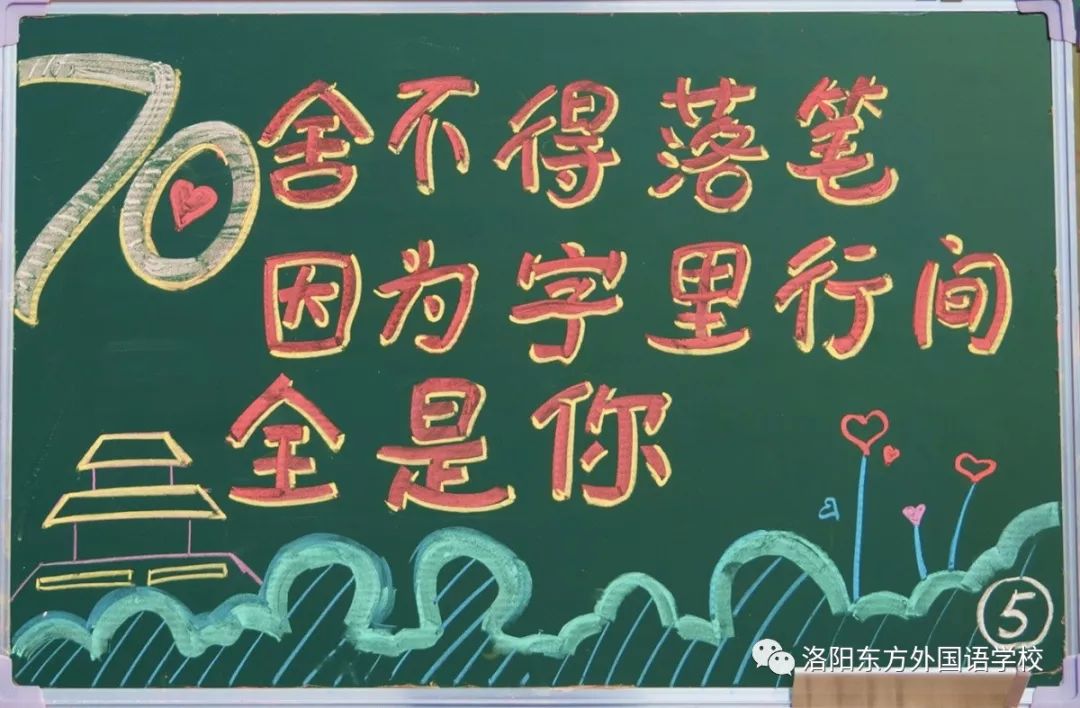 70
舍不得落笔
因为字里行间
全是你
5
洛阳东方外国语学校